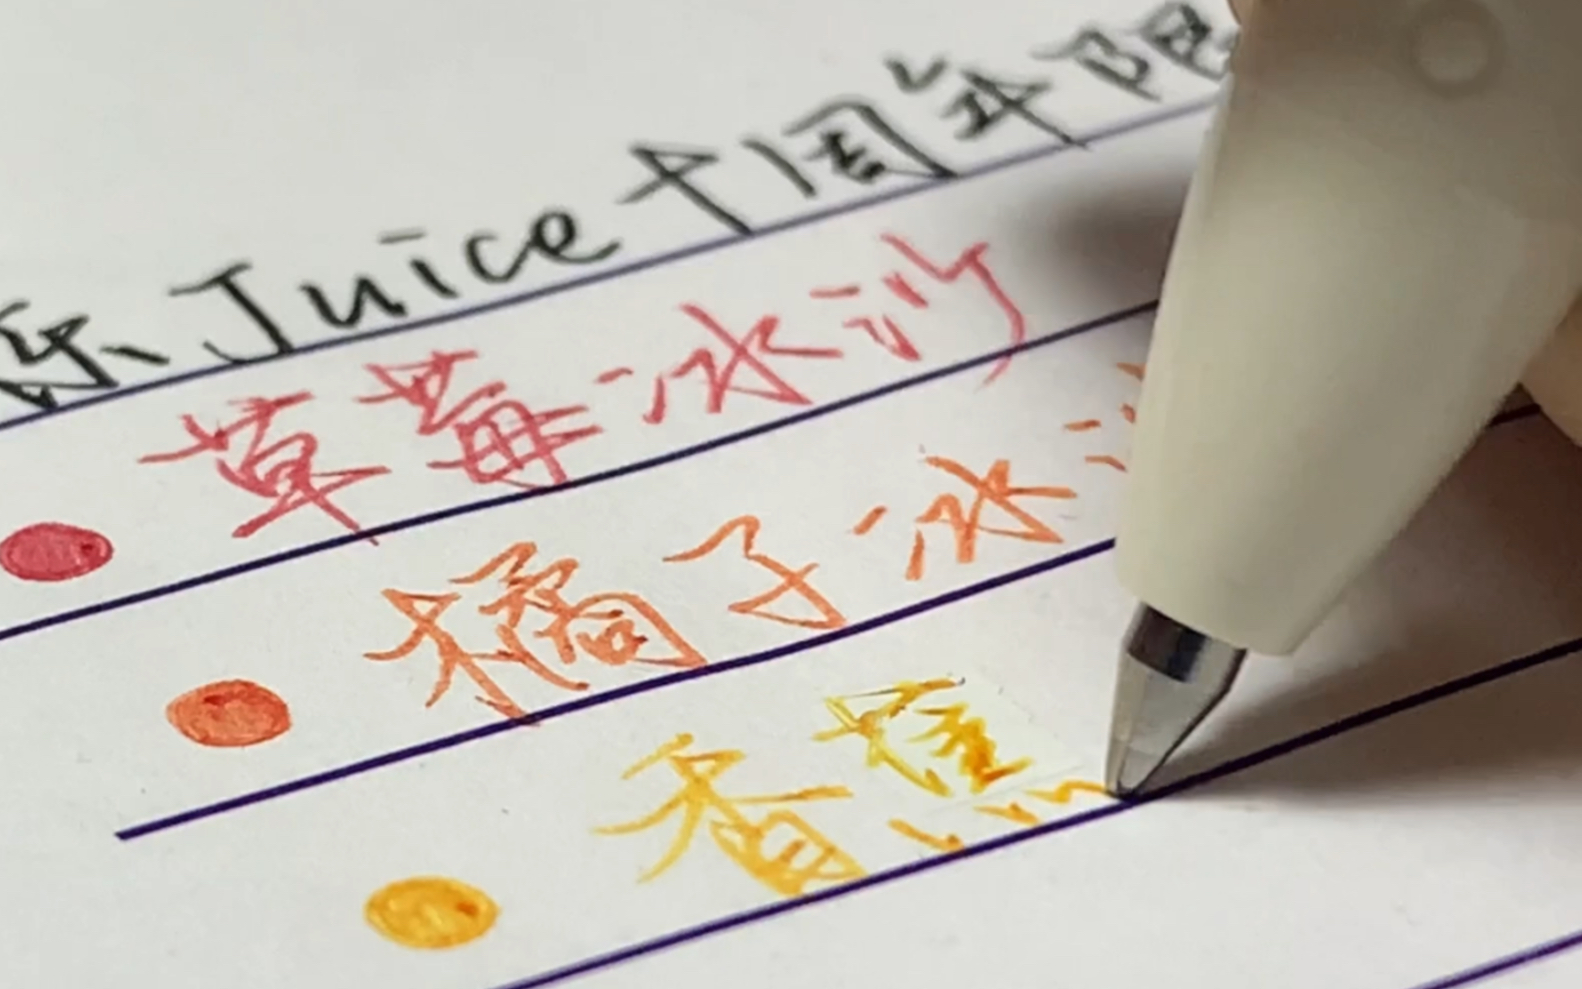 乐Juice十周年限
草莓冰沙
橘子冰
香蕉